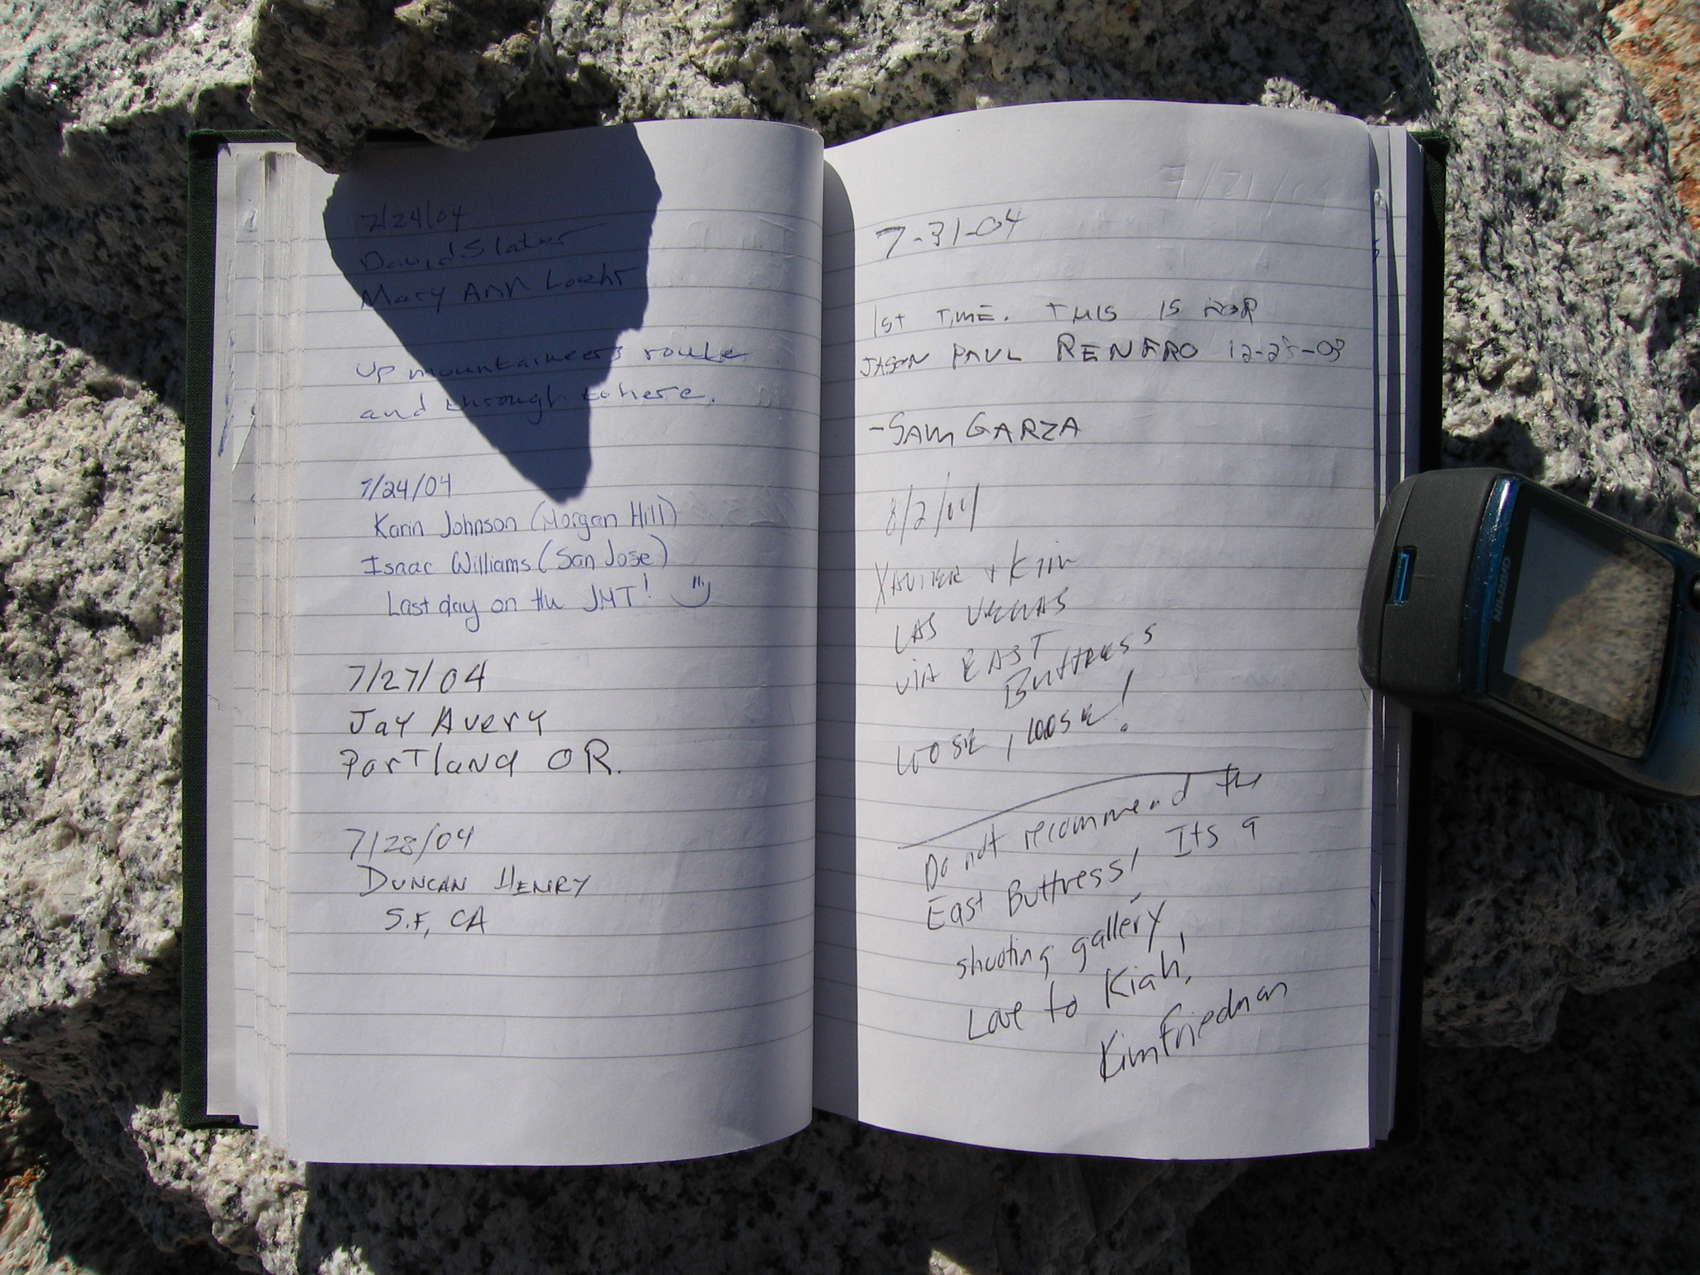 7/24/04
David Slater
Mary Ann Loehr
up mountaineers route
and through to here.
7/24/04
Karin Johnson (Morgan Hill)
Isaac Williams (San Jose)
Last day on the JMT!
7/27/04
Jay Avery
Portland OR.
7/28/04
DUNCAN HENRY
S.F, CA
7-31-04
1ST TIME. THIS IS FOR
JASON PAUL RENFRO 12-25-03
-SAM GARZA
8/2/04
XAVIER + Kim
LAS VEGAS
via EAST
Buttress
LOOSE, LOOSE!
Do not recommend the
East Buttress! Its a
shooting gallery
Love to Kiah!
Kim Friedman
GARMIN